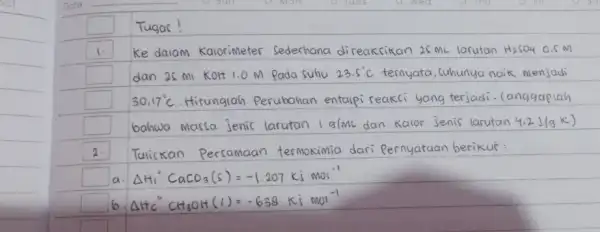 Tugas !
1. Ke dalam Kalorimeter Sederhana direaksikan 25 mL larutan H2SO4 0.5 M
dan 25 ml KOH 1.0 M Pada suhu 23.5°C ternyata, Suhunya naik menjadi
30.17°C. Hitunglah Perubahan entalpi reaksi yang terjadi. (anggaplah
bahwa massa Jenis larutan 1 g/mL dan Kalor Jenis larutan 4.2 J/g K)
2. Tuliskan Persamaan termokimia dari Pernyataan berikut :
a. ΔHf° CaCO3 (s) = -1.207 Kj mol⁻¹
b. ΔHc° CH3OH (l) = -638 Kj mol⁻¹